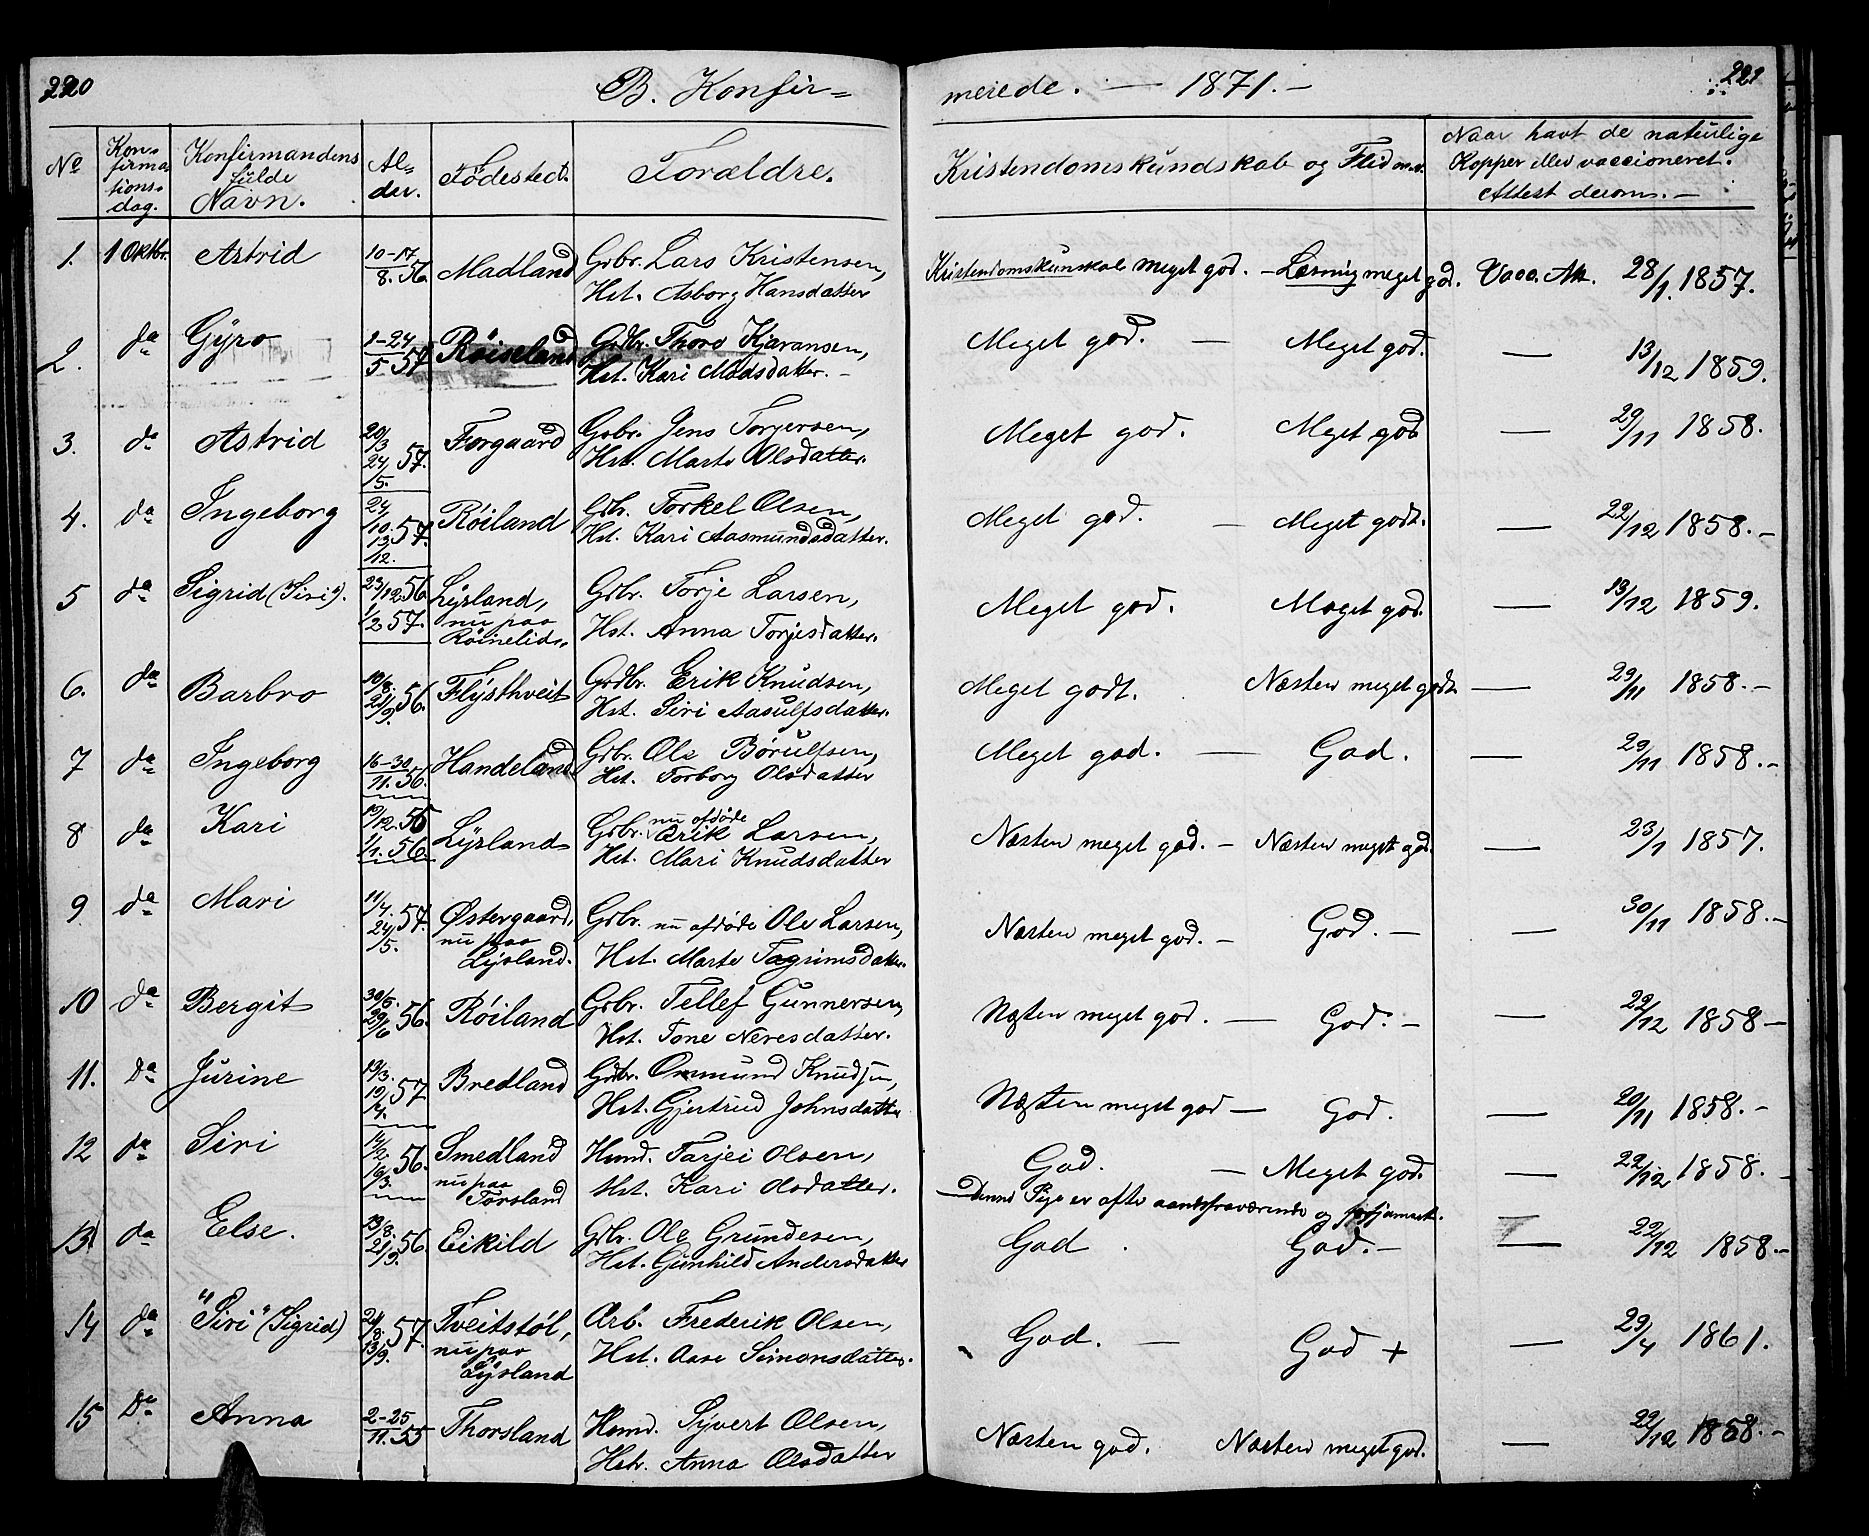 220
B. Konfir=
meirede. — 1871. —
221
No
Kon=
firma=
tions=
dag.
Konfirmandens
fulde
Navn.
Al=
der.
Fødested.
Forældre.
Kristendomskundskab og Flid m.v.
Naar havt de naturlige
Kopper eller vaccioneret.
Attest derom. —
1. 1 Oktbr. Astrid 10-17/8. 56. Madland Grbr. Lars Kristensen, Kristendomskunskab meget god. — Læsning meget god. Vacc. Att. 28/1. 1857.
Hst. Asborg Hansdatter
2. do Gyro 1-24/5 57 Røiseland Grdbr. Thore Kjøransen, Meget god. — Meget god. — 13/12 1859.
Hst. Kari Madsdatter. —
3. do Astrid 20/3 24/5. 57. Forgaard Grbr. Jens Torjersen, Meget god. Meget god — 29/11 1858.
Hst. Marte Olsdatter.
4. do Ingeborg 24/10. 13/12. 57. Røiland Grbr. Torkel Olsen, Meget god. — Meget godt. — 22/12 1858. —
Hst. Kari Aasmundsdatter.
5 do Sigrid (Siri). 23/12 56. 1/2 57. Lysland, Grbr. Torje Larsen, Meget god. Meget god. — 13/12 1859.
nu paa
Røinelid. Hst. Anna Torjesdatter.
6. do Barbro 10/8. 21/9. 56. Flysthveit Grdbr. Erik Knudsen, Meget godt. Næsten meget godt. — 29/11 1858. —
Hst. Siri Aasulfsdatter.
7 do Ingeborg 16-30/11. 56. Handeland Grbr. Ole Børulfsen, Meget god. — God. — 29/11 1858. —
Hst. Torborg Olsdatter
8 do Kari 19/12. 55 1/1. 56. Lysland Grbr. nu afdøde Erik Larsen, Næsten meget god. — Næsten meget god. — 23/1 1857.
Hst. Mari Knudsdatter
9 do Mari 11/4. 24/5. 57. Østergaard, Grbr. nu afdøde Ole Larsen, Næsten meget god. — God. — — 30/11 1858. —
nu paa
Lysland. Hst. Marte Tagrimsdatter.
10 do Bergit 30/5. 29/6 56. Røiland Grbr. Tellef Gunnersen, Næsten meget god. — God. — — 22/12 1858 —
Hst. Tone Neresdatter.
11. Do Jurine 19/3. 19/4. 57 Bredland Grbr. Ommund Knudsen, Næsten meget god — God. — 20/11 1858. —
Hst. Gjertrud Johnsdatter
12 do Siri 14/2 16/3. 56. Smedland Husmd. Tarjei Olsen, God. — Meget god. — 22/12 1858. —
nu paa
Torsland Hst. Kari Olsdatter. — Denne Pige er ofte aandsfraværende og
13. do Else. 13/8. 21/9. 56. Eikild Grbr. Ole Grundesen, God. God. — — 22/12 1858. —
Hst. Gunhild Andersdatter
14 do "Siri" (Sigrid) 24/8. 13/9. 57. Tveitstøl, Arb. Frederik Olsen, God. — God + — 29/4 1861.
nu paa
Lysland Hst. Aase Simonsdatter.
15 Do Anna 2-25/11. 55 Thorsland Husmd. Syvert Olsen, Næsten god. Næsten meget god. — 22/12 1858. —
Hstr. Anna Olsdatter